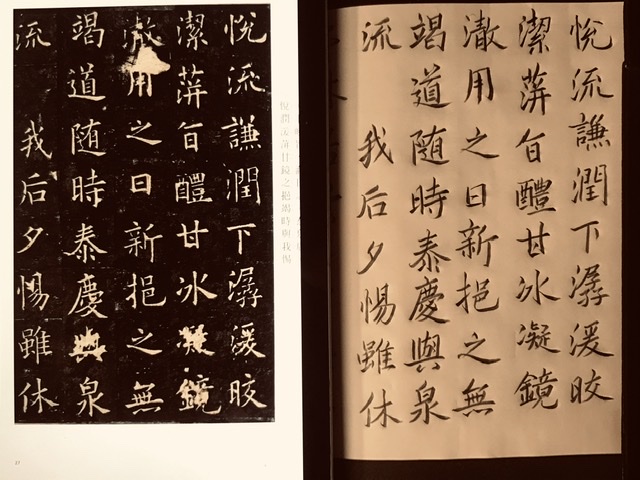 悅流謙潤下潺湲皎
潔蓱旨醴甘冰凝鏡
澈用之日新挹之無
竭道随時泰慶與泉
流 我后夕惕雖休
悅流謙潤下潺湲皎
潔蓱旨醴甘冰凝鏡
澈用之日新挹之無
竭道随時泰慶與泉
流 我后夕惕雖休